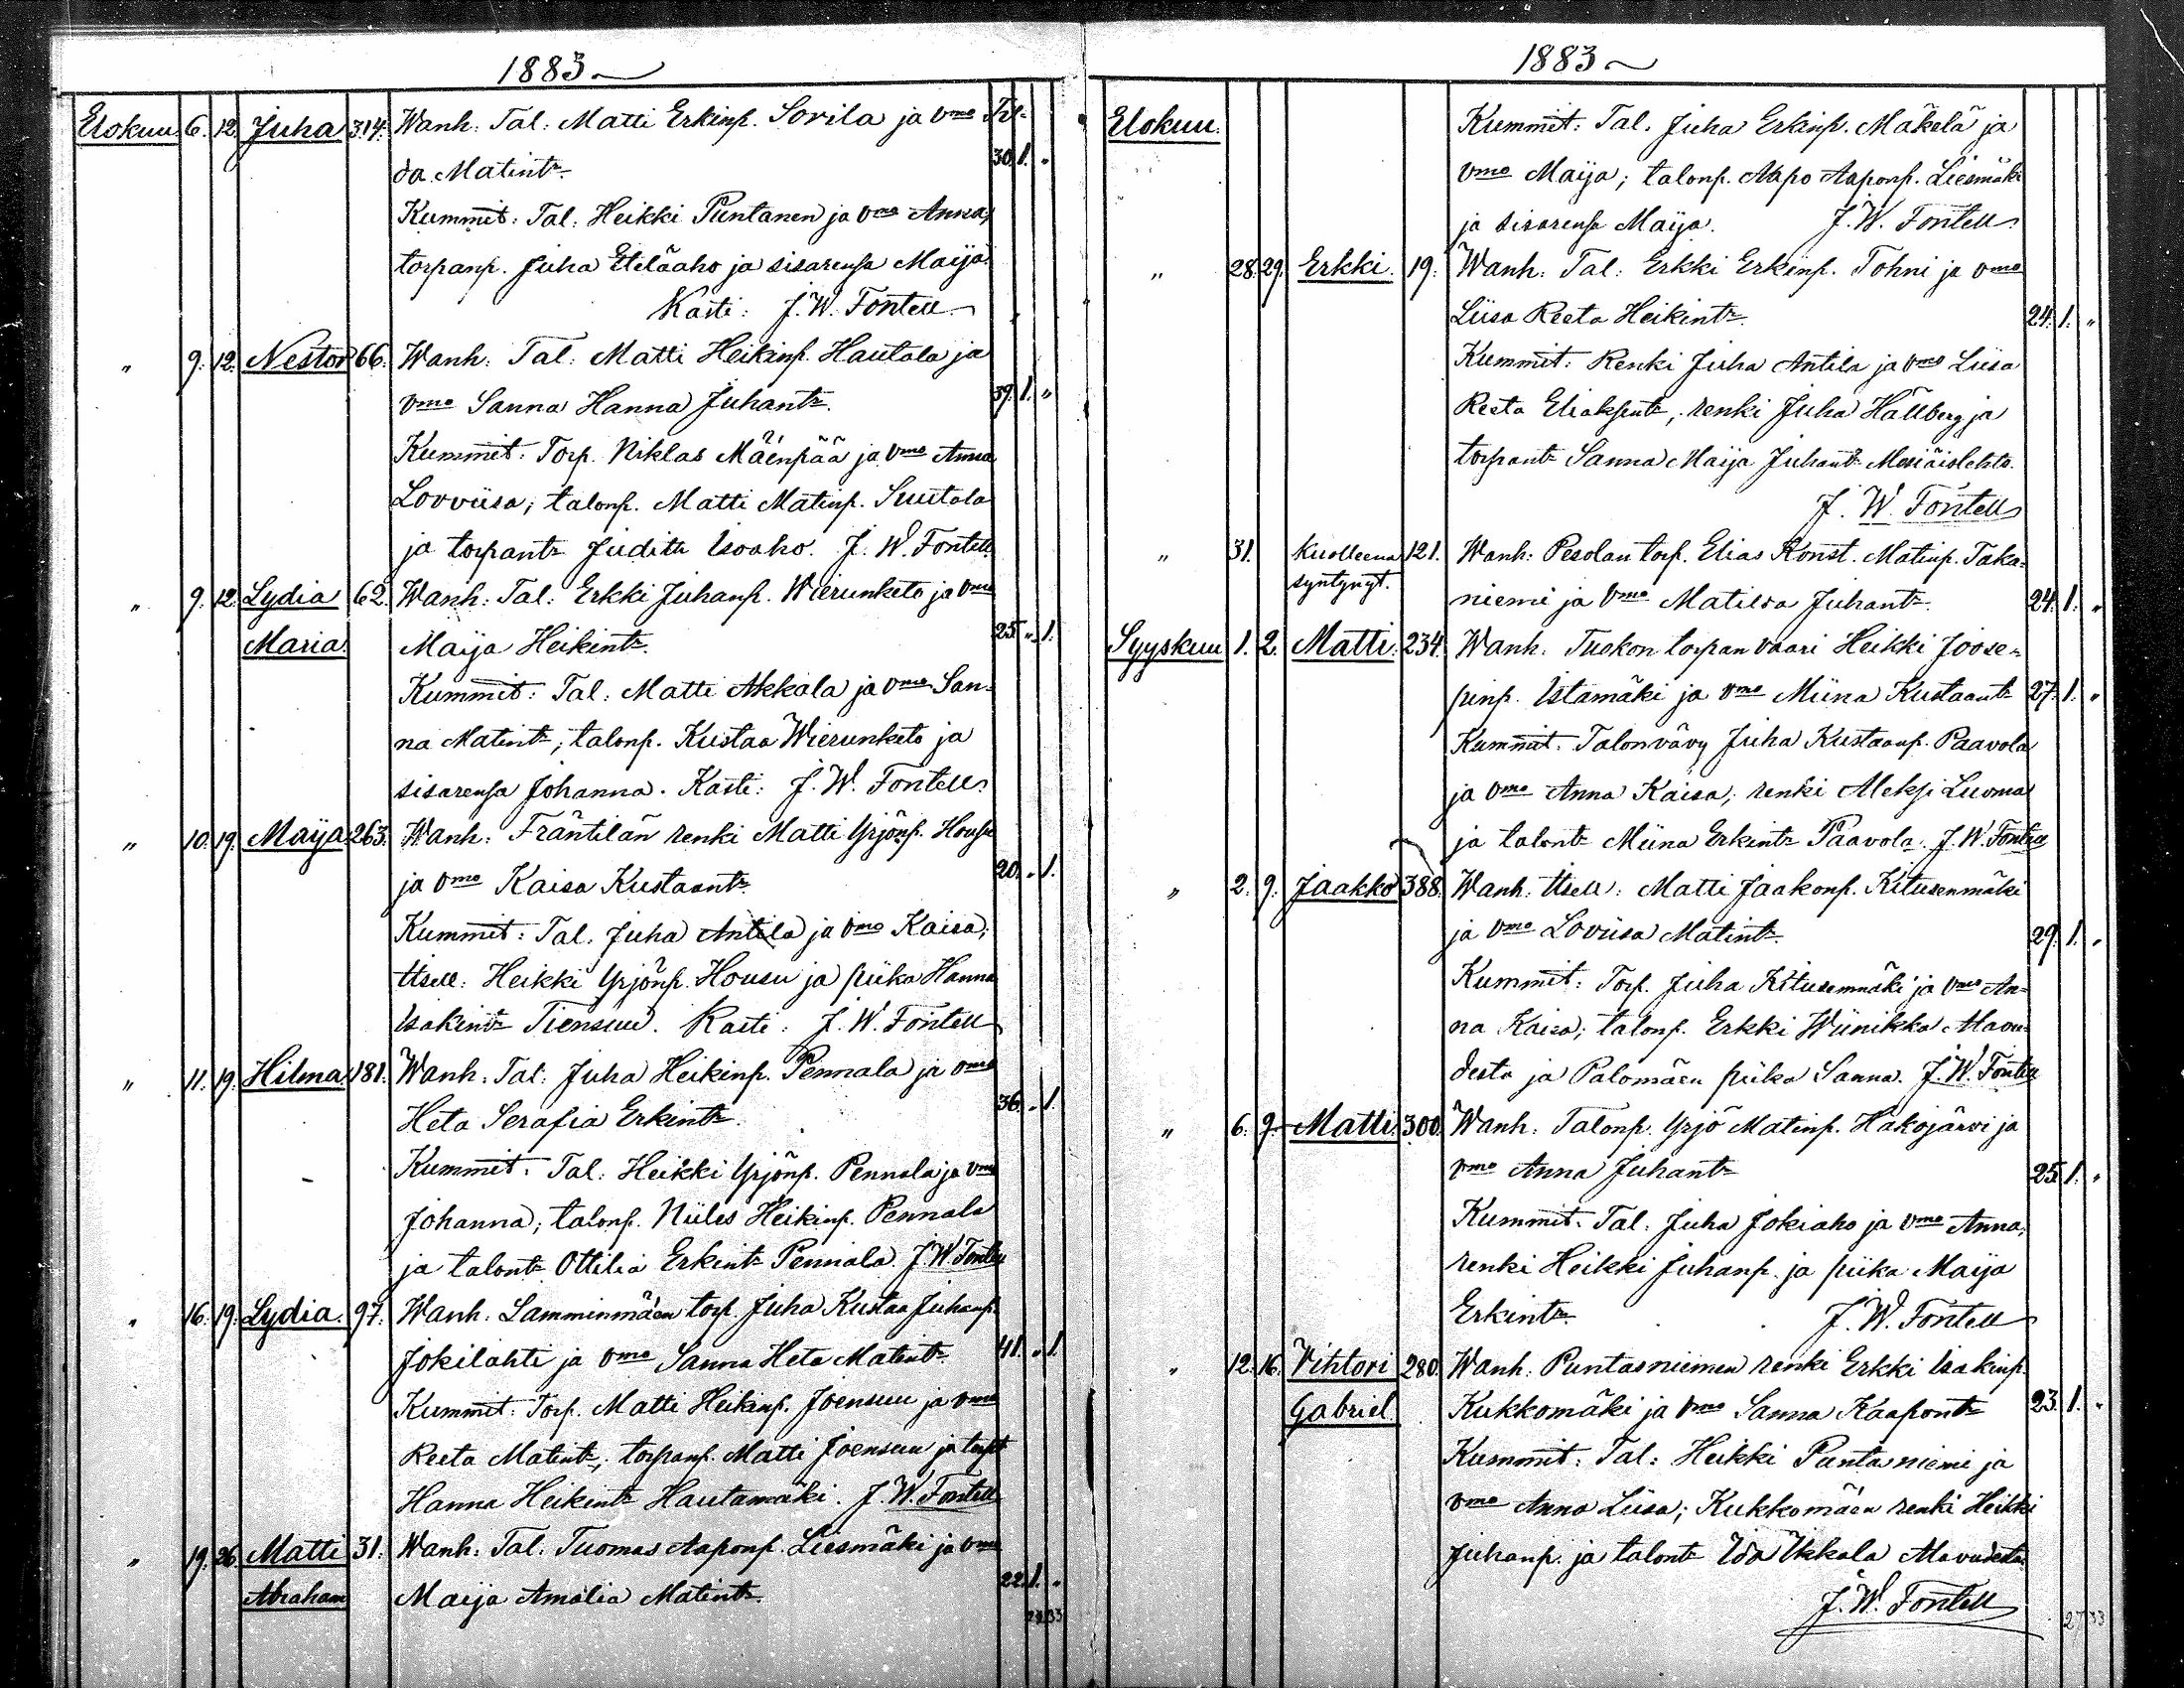 1883
Elokuu 6. 12. Juha 314. Wanh: Tal: Matti Erkinp. Sorila ja vmo Til-
da Matintr. 30. 1. "
Kummit: Tal: Heikki Puntanen ja vmo Anna,
torpanp. Juha Eteläaho ja sisarensa Maija.
Kasti: J. W. Fontell
" 9. 12. Nestor 66. Wanh: Tal: Matti Heikinp. Hautala ja
vmo Sanna Hanna Juhantr. 39. 1. "
Kummit: Torp. Niklas Mäenpää ja vmo Anna
Lovviisa; talonp. Matti Matinp. Suutala
ja torpantr Judith Isoaho. J. W. Fontell
" 9. 12. Lydia 62. Wanh: Tal: Erkki Juhanp. Wierunketo ja vmo
Maria. Maija Heikintr. 25. " 1.
Kummit: Tal: Matti Akkala ja vmo San-
na Matintr; talonp. Kustaa Wierunketo ja
sisarensa Johanna. Kasti: J. W. Fontell
" 10. 19. Maija 263. Wanh: Fräntilän renki Matti Yrjönp. Housu
ja vmo Kaisa Kustaantr. 20. " 1.
Kummit: Tal. Juha Antila ja vmo Kaisa;
Itsell: Heikki Yrjönp. Housu ja piika Hanna
Isakintr Tiensuu. Kasti: J. W. Fontell
" 11. 19. Hilma 181. Wanh: Tal: Juha Heikinp. Pennala ja vmo
Heta Serafia Erkintr. 36. " 1.
Kummit: Tal: Heikki Yrjönp. Pennala ja vmo
Johanna; talonp. Niiles Heikinp. Pennala
ja talontr Ottilia Erkintr Pennala J. W. Fontell
" 16. 19. Lydia. 97. Wanh: Lamminmäen torp. Juha Kustaa Juhanp.
Jokilahti ja vmo Sanna Heta Matintr. 41. " 1.
Kummit: Torp. Matti Heikinp. Joensuu ja vmo
Reeta Matintr; torpanp. Matti Joensuu ja torpt
Hanna Heikintr Hautamäki. J. W. Fontell
" 19. 26. Matti 31. Wanh: Tal. Tuomas Aaponp. Liesmäki ja vmo
Abraham Maija Amalia Matintr. 22. 1. "
1883
Elokuu. Kummit: Tal. Juha Erkinp. Mäkelä ja
vmo Maija; talonp. Aapo Aaponp. Liesmäki
ja sisarensa Maija. J. W. Fontell
" 28. 29. Erkki. 19. Wanh: Tal: Erkki Erkinp. Tohni ja vmo
Liisa Reeta Heikintr. 24. 1. "
Kummit: Renki Juha Antila ja vmo Liisa
Reeta Eliaksentr, renki Juha Hällberg ja
torpantr Sanna Maija Juhantr Mesiäislehto.
J. W. Fontell
" 31. Kuolleena 121. Wanh: Pesolan torp. Elias Konst. Matinp. Taka-
syntynyt. niemi ja vmo Matilda Juhantr. 24. 1. "
Syyskuu 1. 2. Matti. 234. Wanh: Tuokon torpan vaari Heikki Joose-
pinp. Istamäki ja vmo Miina Kustaantr 27. 1. "
Kummit: Talonvävy Juha Kustaanp. Paavola
ja vmo Anna Kaisa; renki Aleksi Luoma
ja talontr Miina Erkintr Paavola. J. W. Fontell
" 2. 9. Jaakko 388. Wanh: Itsell: Matti Jaakonp. Kitusenmäki
ja vmo Loviisa Matintr. 29. 1. "
Kummit: Torp. Juha Kitusenmäki ja vmo An-
na Kaisa; talonp. Erkki Wiinikka Alavu-
desta ja Palomäen piika Sanna. J. W. Fontell
" 6. 9. Matti. 300. Wanh: Talonp. Yrjö Matinp. Hakojärvi ja
vmo Anna Juhantr 25. 1. "
Kummit: Tal: Juha Jokiaho ja vmo Anna;
renki Heikki Juhanp. ja piika Maija
Erkintr. J. W. Fontell
" 12. 16. Vihtori 280. Wanh: Puntasniemen renki Erkki Isakinp.
Gabriel Kukkomäki ja vmo Sanna Kaapontr 23. 1. "
Kummit: Tal: Heikki Puntasniemi ja
vmo Anna Liisa; Kukkomäen renki Heikki
Juhanp. ja talontr Ida Ukkala Alavudesta.
J. W. Fontell
27 33